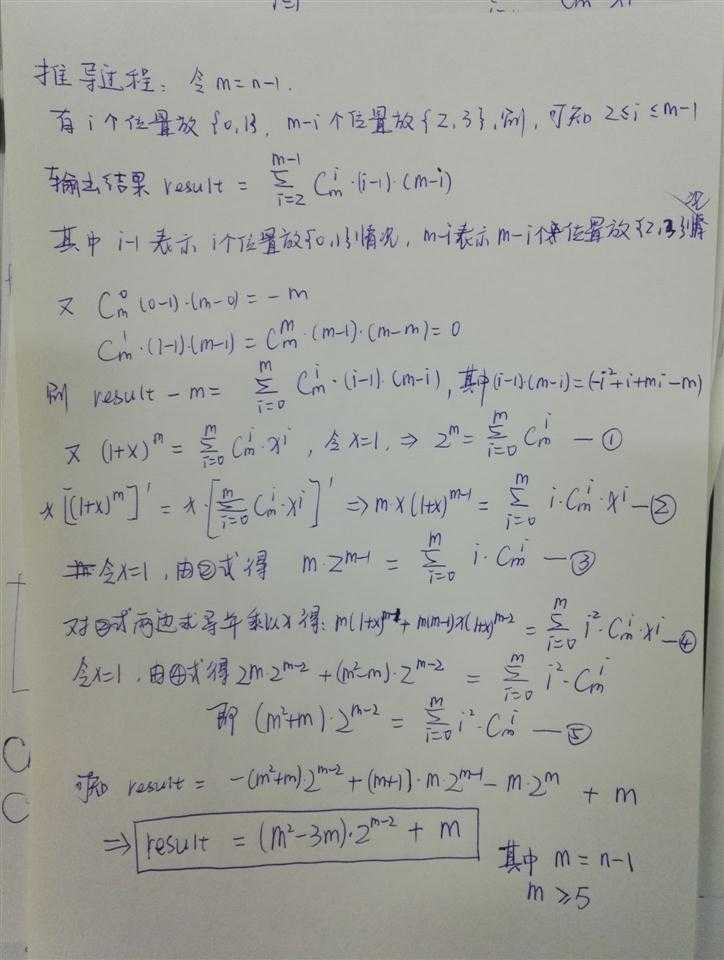 推导过程: 令 m=n-1.
有 i 个位置放 {0,1}, m-i 个位置放 {2,3}, 则, 可知 2≤i≤m-1
输出结果 result = \sum_{i=2}^{m-1} C_m^i·(i-1)·(m-i)
其中 i-1 表示 i个位置放{0,1}情况, m-i表示 m-i个位置放{2,3}情况
又 C_m^0 (0-1)·(m-0) = -m
C_m^1·(1-1)·(m-1) = C_m^m·(m-1)·(m-m) = 0
则 result - m = \sum_{i=0}^{m} C_m^i·(i-1)·(m-i), 其中(i-1)·(m-i)=(-i²+i+mi-m)
又 (1+x)^m = \sum_{i=0}^{m} C_m^i·x^i, 令x=1, ⇒ 2^m = \sum_{i=0}^{m} C_m^i —①
x[(1+x)^m]' = x·[\sum_{i=0}^{m} C_m^i·x^i]' ⇒ m·x(1+x)^{m-1} = \sum_{i=0}^{m} i·C_m^i·x^i —②
令x=1, 由②式得 m·2^{m-1} = \sum_{i=0}^{m} i·C_m^i —③
对②式两边求导并乘以x得: m(1+x)^{m-1} + m(m-1)x(1+x)^{m-2} = \sum_{i=0}^{m} i²·C_m^i·x^i —④
令x=1, 由④式得 2m·2^{m-2} + (m²-m)·2^{m-2} = \sum_{i=0}^{m} i²·C_m^i
即 (m²+m)·2^{m-2} = \sum_{i=0}^{m} i²·C_m^i —⑤
可知 result = -(m²+m)·2^{m-2} + (m+1)·m·2^{m-1} - m·2^m + m
⇒ result = (m²-3m)·2^{m-2} + m
其中 m=n-1
m≥5